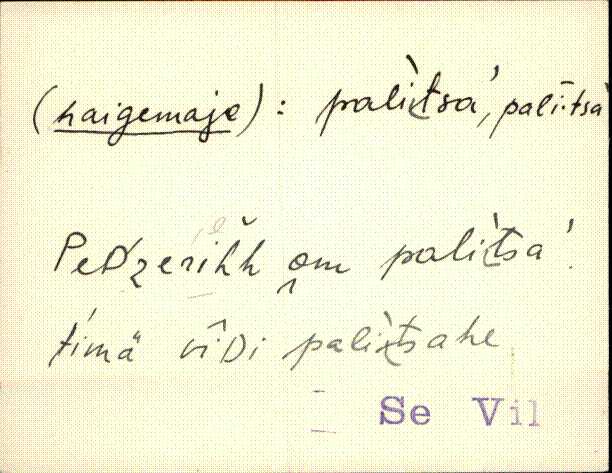 (haigemaje): pali̬t̀sa', palī·tsa'
Peᴅ́zerikk om pali̬t̀sa'.
timä vîᴅi pali̬t̀sahe
Se Vil